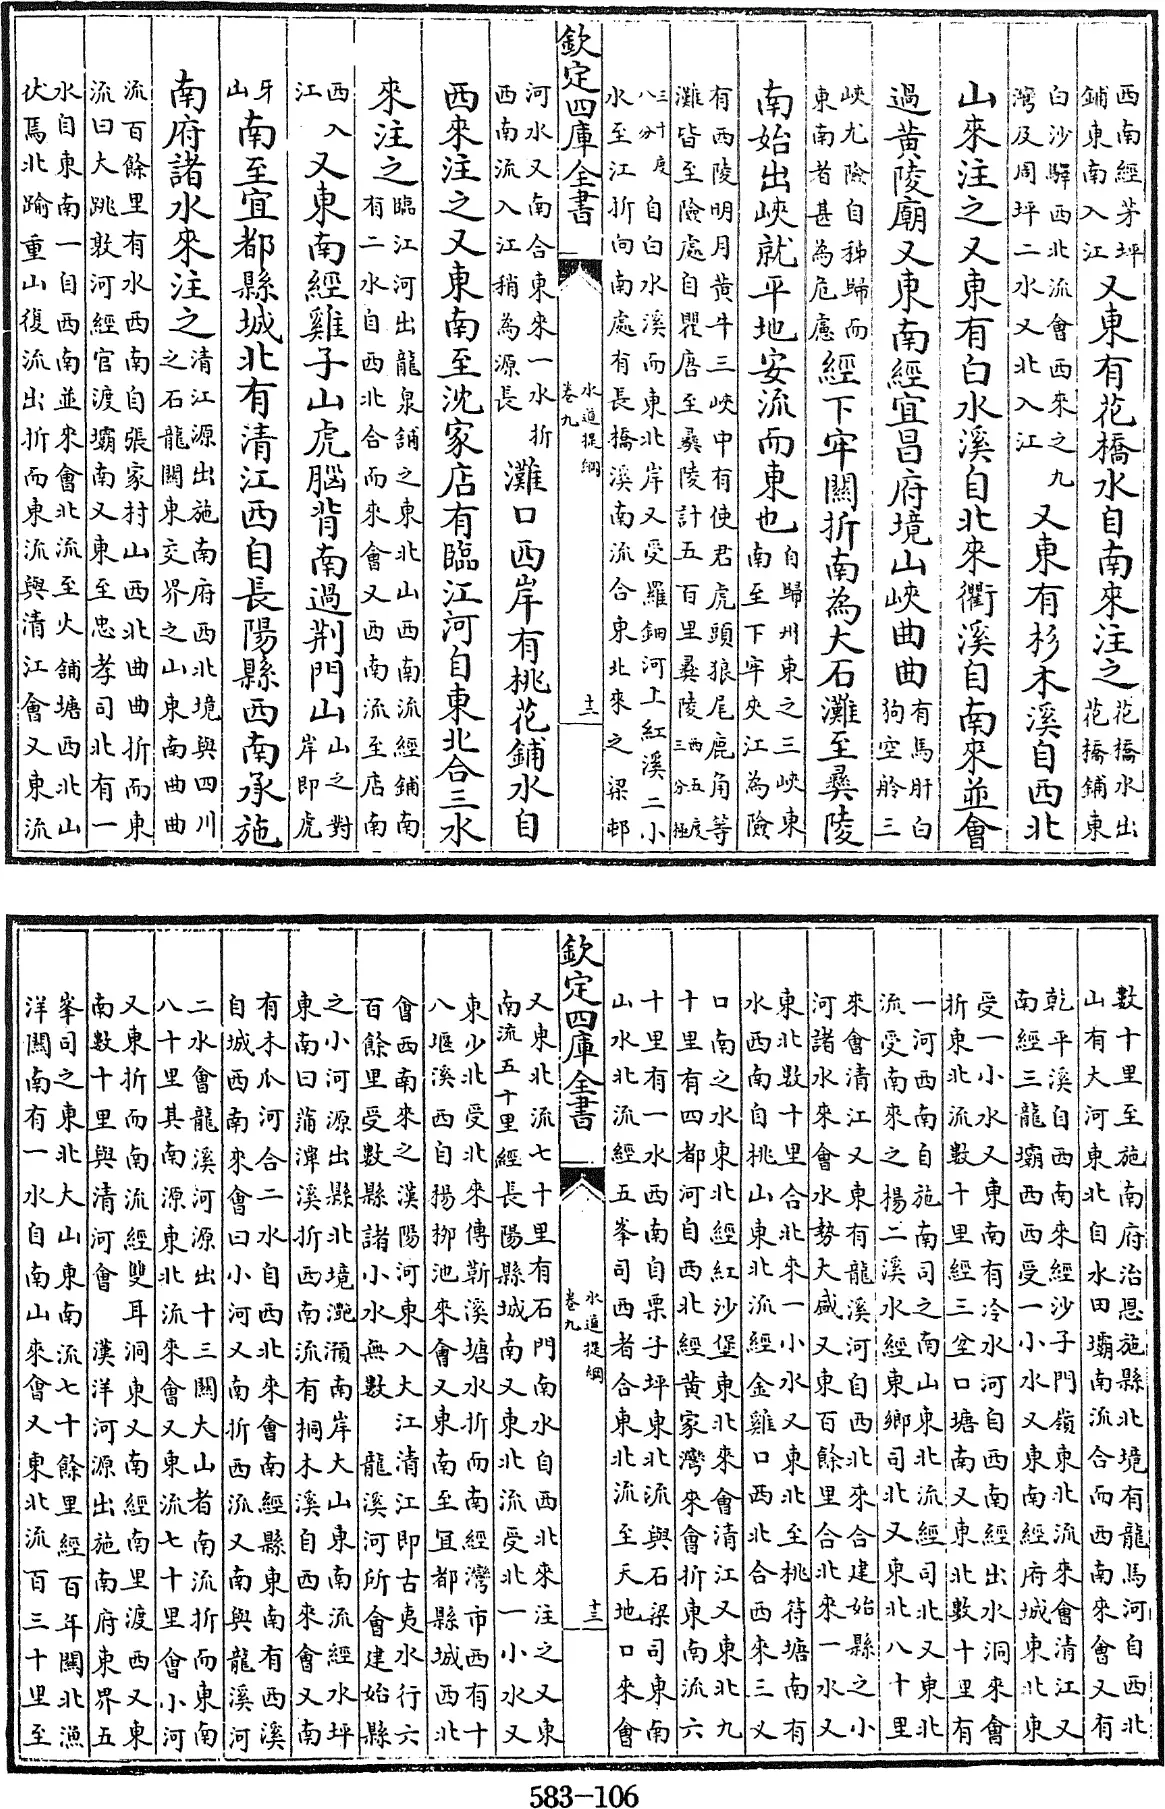 西南經茅坪鋪東南入江又東有花橋水自南來注之花橋水出花橋鋪東
白沙驛西北流會西來之九灣及周坪二水又北入江又東有杉木溪自西北
山來注之又東有白水溪自北來衢溪自南來並會
過黃陵廟又東南經宜昌府境山峽曲曲有馬肝白狗空舲三
峽尤險自秭歸而東南者甚為危慮經下牢關折南為大石灘至彝陵
南始出峽就平地安流而東也自歸州東之三峽東南至下牢夾江為險
有西陵明月黃牛三峽中有使君虎頭狼尾鹿角等灘皆至險處自瞿唐至彝陵計五百里彝陵西五度三分極
三十度八分自白水溪而東北岸又受羅鈿河上紅溪二小水至江折向南處有長橋溪南流合東北來之梁邨
欽定四庫全書
水道提綱
卷九
十二
河水又南合東來一水折西南流入江稍為源長灘口西岸有桃花鋪水自
西來注之又東南至沈家店有臨江河自東北合三水
來注之臨江河出龍泉鋪之東北山西南流經鋪南有二水自西北合而來會又西南流至店南
西入江又東南經雞子山虎腦背南過荆門山山之對岸即虎
牙山南至宜都縣城北有清江西自長陽縣西南承施
南府諸水來注之清江源出施南府西北境與四川之石龍關東交界之山東南曲曲
流百餘里有水西南自張家村山西北曲曲折而東流曰大跳敦河經官渡壩南又東至忠孝司北有一
水自東南一自西南並來會北流至火鋪塘西北山伏焉北踰重山復流出折而東流與清江會又東流
數十里至施南府治恩施縣北境有龍馬河自西北山有大河東北自水田壩南流合而西南來會又有
乾平溪自西南來經沙子門嶺東北流來會清江又南經三龍壩西西受一小水又東南經府城東北東
受一小水又東南有冷水河自西南經出水洞來會折東北流數十里經三岔口塘南又東北數十里有
一河西南自施南司之南山東北流經司北又東北流受南來之楊二溪水經東鄉司北又東北八十里
來會清江又東有龍溪河自西北來合建始縣之小河諸水來會水勢大盛又東百餘里合北來一水又
東北數十里合北來一小水又東北至桃符塘南有水西南自桃山東北流經金雞口西北合西來三叉
口南之水東北經紅沙堡東北來會清江又東北九十里有四都河自西北經黃家灣來會折東南流六
十里有一水西南自栗子坪東北流與石梁司東南山水北流經五峯司西者合東北流至天地口來會
欽定四庫全書
水道提綱
卷九
十三
又東北流七十里有石門南水自西北來注之又東南流五十里經長陽縣城南又東北流受北一小水又
東少北受北來傳靳溪塘水折而南經灣市西有十八堰溪西自揚柳池來會又東南至宜都縣城西北
會西南來之漢陽河東入大江清江即古夷水行六百餘里受數縣諸小水無數　龍溪河所會建始縣
之小河源出縣北境灔澦南岸大山東南流經水坪東南曰蒲潭溪折西南流有桐木溪自西來會又南
有木瓜河合二水自西北來會南經縣東南有西溪自城西南來會曰小河又南折西流又南與龍溪河
二水會龍溪河源出十三關大山者南流折而東南八十里其南源東北流來會又東流七十里會小河
又東折而南流經雙耳洞東又南經南里渡西又東南數十里與清河會　漢洋河源出施南府東界五
峯司之東北大山東南流七十餘里經百年關北漁洋關南有一水自南山來會又東北流百三十里至
583-106